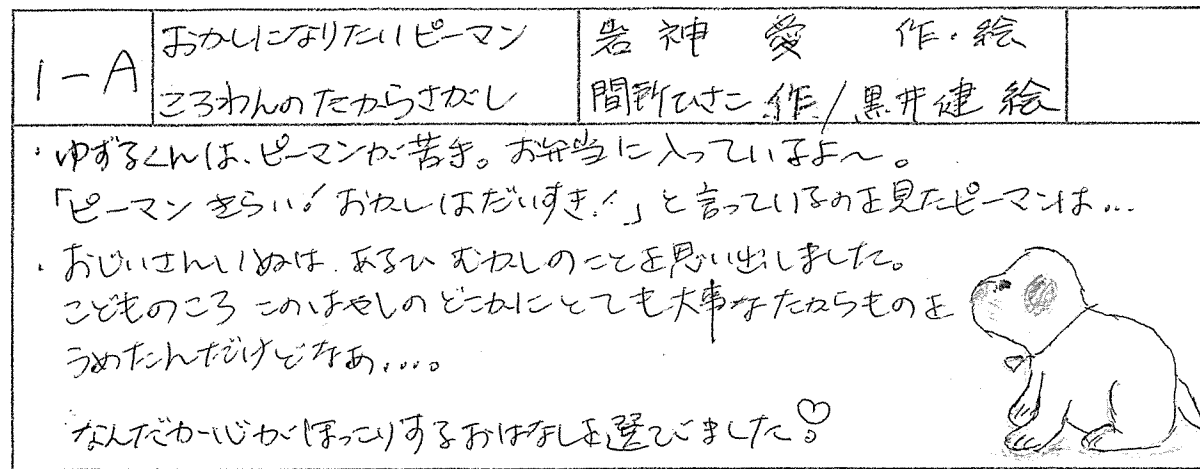 1-A
おかしになりたいピーマン
ころわんのたからさがし
岩神 愛 作・絵
間所ひさこ 作/黒井健 絵
・ゆずるくんは、ピーマンが苦手。お弁当に入っているよ〜。
「ピーマンきらい!おかしはだいすき!」と言っているのを見たピーマンは…
・おじいさんいぬは、あるひ むかしのことを思い出しました。
こどものころ このはやしの どこかにとても大事なたからものを
うめたんだけどなあ....。
なんだか心がほっこりするおはなしを選びました♡。